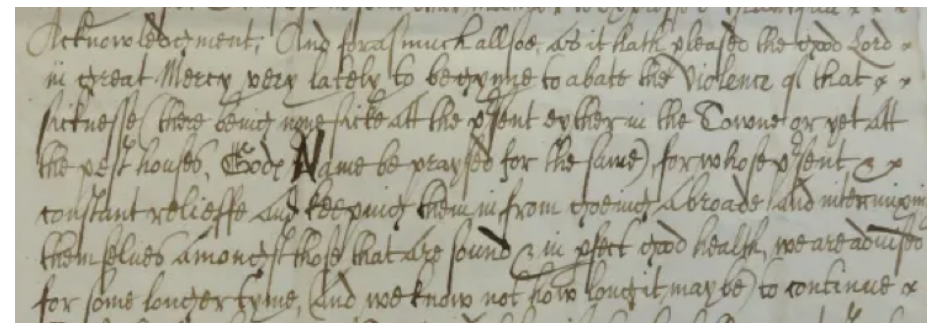 Acknowledgment; And forasmuch allsoe, as it hath pleased the good Lord
in great Mercy very lately to begynne to abate the Violence of that
sicknesse (there being none sicke att the p'sent eyther in the Towne or yet att
the pest houses, Gods Name be praysed for the same), for whose p'sent, &
constant relieffe and keeping them in from goeing Abroade And intermixing
themselves amongst those that are sound & in p'fect good health, we are advised
for some longer tyme, (And we know not how long it may be) to continue